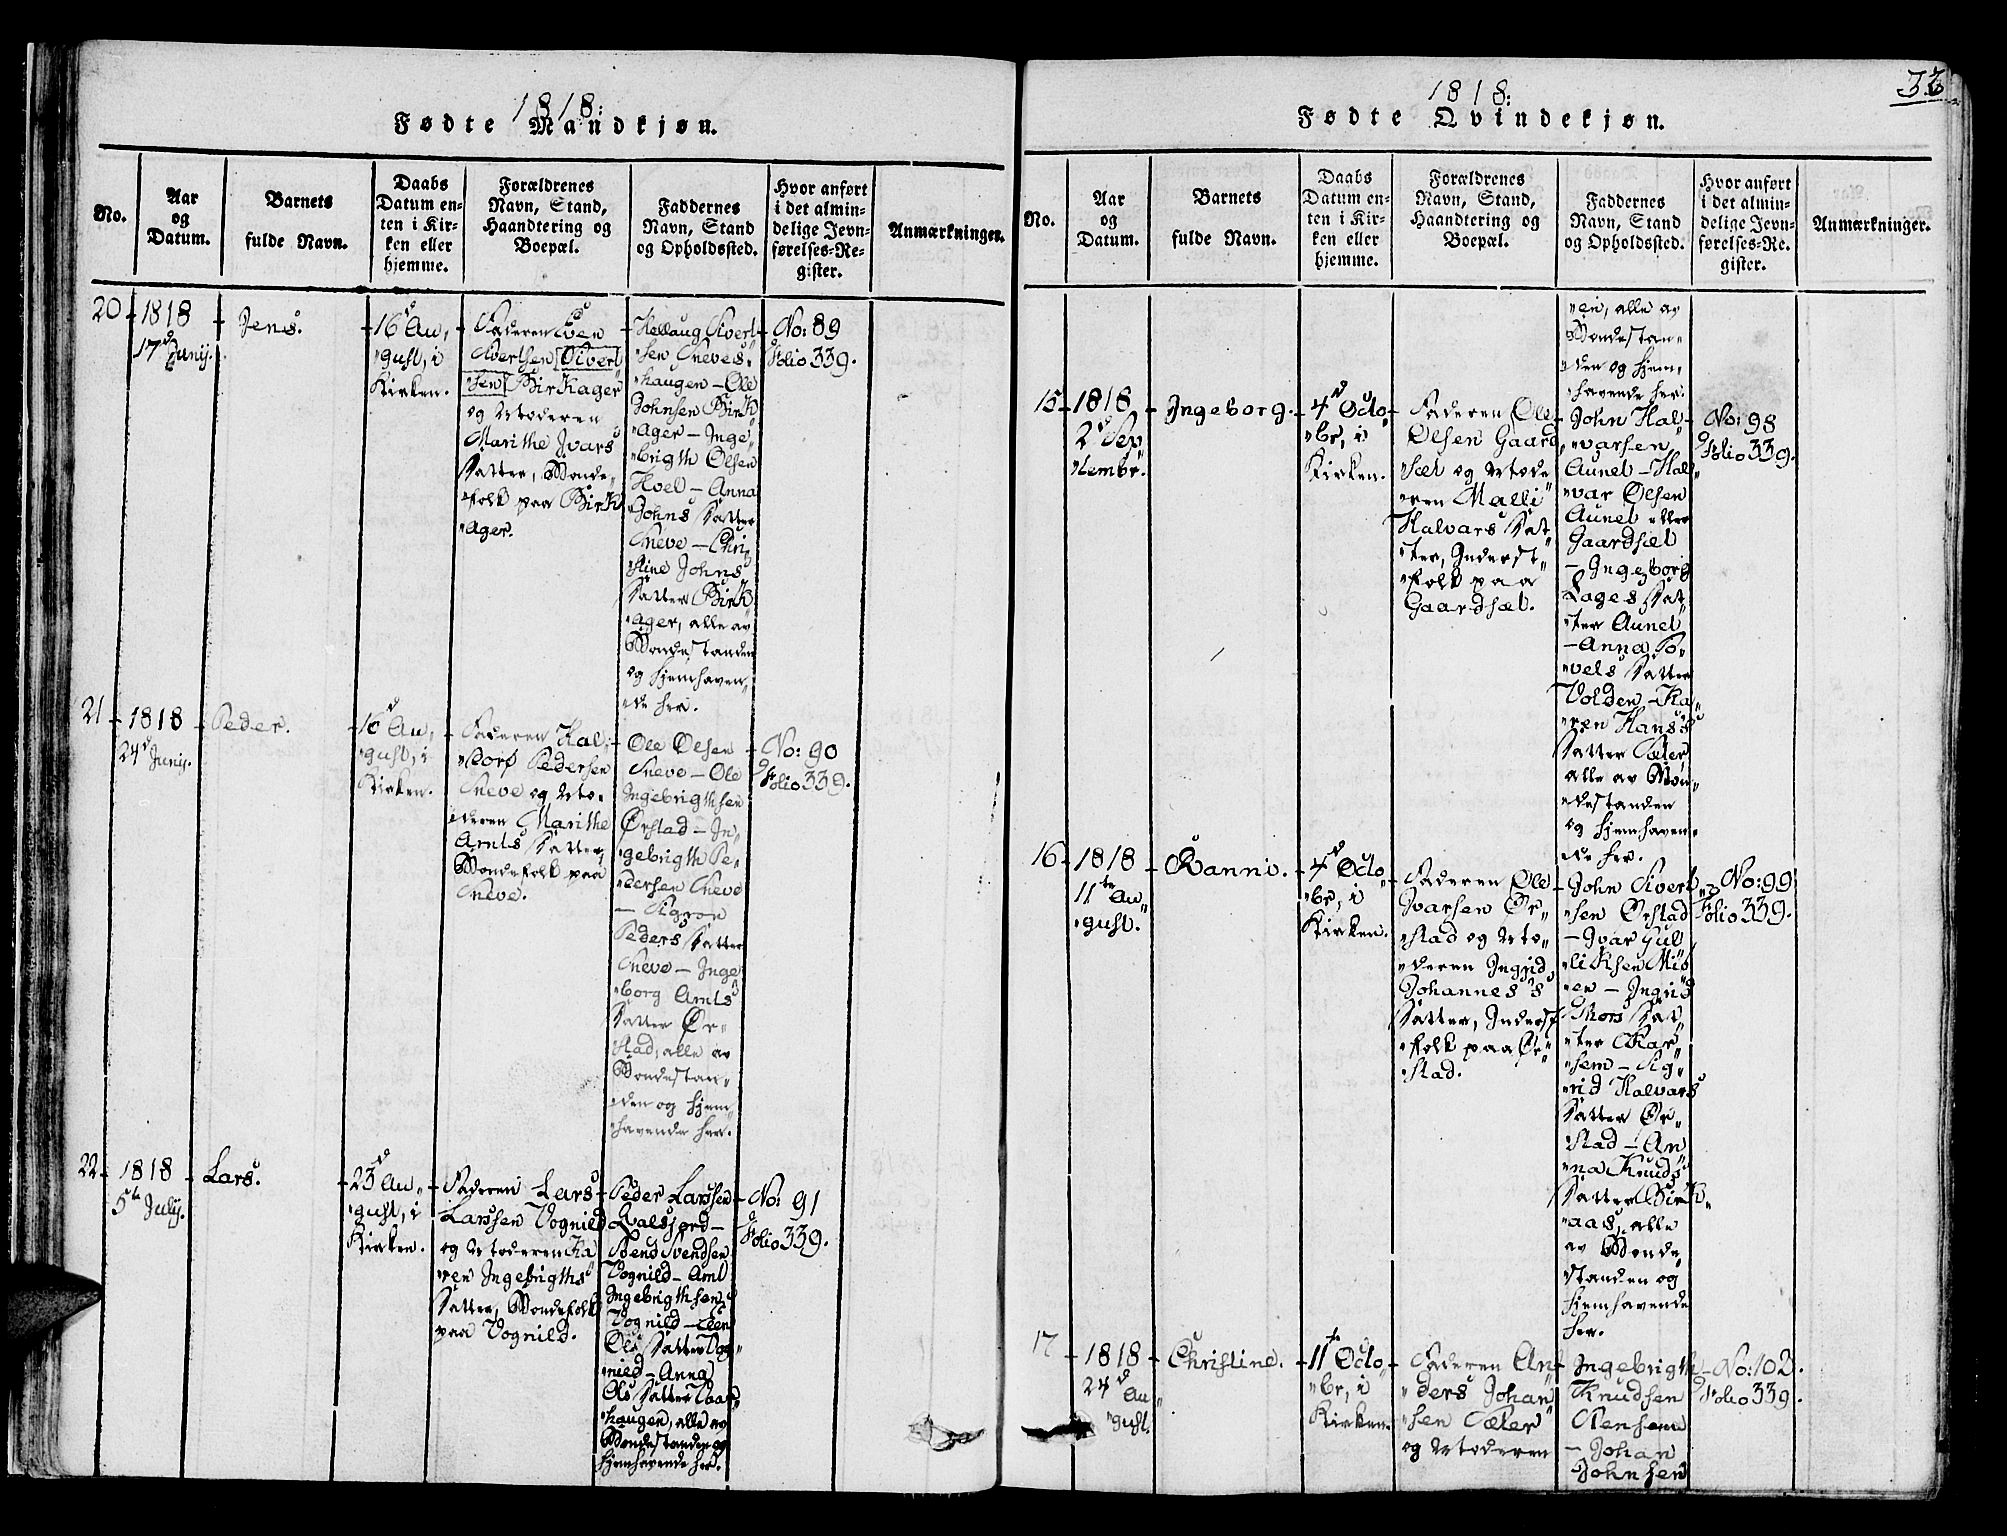 1818:
Fødte Mandkjøn.
No.
Aar
og
Datum.
Barnets
fulde Navn.
Daabs
Datum en-
ten i Kir-
ken eller
hjemme.
Forældrenes
Navn, Stand,
Haandtering og
Boepæl.
Faddernes
Navn, Stand
og Opholdssted.
Hvor anført
i det almin-
delige Jevn-
førelses-Re-
gister.
Anmærkninger.
20
1818
17d Junij.
Jens.
16d Au„
„gust, i
Kirken.
Faderen Sven
Sivertsen [Sivert„
„sen] Birkager
og Moderen
Marithe Ivars
Datter, Bonde„
„folk paa Birk„
„ager.
Kellaug Sivert„
„sen Sneves„
„haugen – Ole
Johnsen Birk„
„ager – Inge„
„brigth Olsen
Hoel – Anna
Johns Datter
Sneve – Chri„
„stine Johns
Datter Birk„
„ager, alle av
Bondestanden
og hjemhaven„
„de her.
No: 89
Folio 339.
21
1818
24d Junij.
Peder.
16d Au„
„gust, i
Kirken.
Faderen Hal„
„dorø Pedersen
Sneve og Mo„
„deren Marithe
Arnts Datter,
Bondefolk paa
Sneve.
Ole Olsen
Sneve – Ole
Ingebrigthsen
Ørstad – In„
„gebrigth Pe„
„dersen Sneve
– Sigron
Peders Datter
Sneve – Inge„
„borg Arnts
Datter Ør„
„stad, alle av
Bondestan„
„den og hjem„
„havende her.
No: 90
Folio 339.
22
1818
5te July.
Lars.
23d Au„
„gust, i
Kirken.
Faderen Lars
Larssen Vognild
og Moderen Ka„
„ren Ingebrigths
Datter, Bondefolk
paa Vognild.
Peder Larssen
Svendsen
Vognild – Arnt
Ingebrigthsen
Vognild –
Ols Datter Vog„
„nild – Anna
Ols Datter
„haugen, alle av
Bondestanden og
hjemhavende her.
No: 91
Folio 339.
1818:
33
Fødte Qvindekjøn.
No.
Aar
og
Datum.
Barnets
fulde Navn.
Daabs
Datum en-
ten i Kir-
ken eller
hjemme.
Forældrenes
Navn, Stand,
Haandtering og
Boepæl.
Faddernes
Navn, Stand
og Opholdssted.
Hvor anført
i det almin-
delige Jevn-
førelses-Re-
gister.
Anmærkninger.
„en, alle av
Bondestan„
„den og hjem„
„havende her.
15
1818
2d Sep„
„tembr.
Ingeborg.
4d Octo„
„br, i
Kirken.
Faderen Ole
Olsen Gaard„
„sæt og Mode„
„ren Malli
Halvars Dat„
„ter, Inderst„
„folk paa
Gaardsæt.
John Hal„
„varsen
Aunet – Hal„
„var Olsen
Aunet eller
Gaardsæt
– Ingeborg
Lages Dat„
„ter Aunet
– Anna Po„
„vels Datter
Volden – Ka„
„ren Hans's
Datter Sæter
alle av Bon„
„destanden
og hjemhaven„
„de her.
No: 98
Folio 339.
16
1818
11te Au„
„gust.
Ranni.
4d Octo„
„br, i
Kirken.
Faderen Ole
Ivarsen Ør„
„stad og Mo„
„deren Ingrid
Johannes's
Datter, Inderst„
„folk paa Ør„
„stad.
John Sivert„
„sen Ørstad
– Ivar Gul„
„liksen Mio„
„en – Ingrid
Thors Dat„
„ter Kar„
„sem – Sig„
„rid Halvars
Datter Ør„
„stad – An„
„na Knuds
Datter Birk„
„aas, alle
av Bonde„
„standen og
hjemhavende
her.
No: 99
Folio 339.
17
1818
24d Au„
„gust.
Christine.
11te Octo„
„br, i
Kirken.
Faderen An„
„ders Johan„
„sen Sæter
og Moderen
Ingebrigth
Knudsen
– Johan
Johnsen
No: 102.
Folio 339.